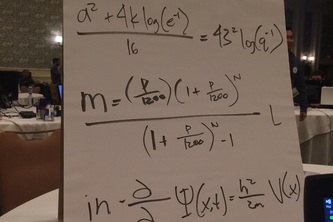 a² + 4k log(e⁻¹) / 16 = 43² log(q⁻¹)
m = (P/1200)(1 + P/1200)^N / (1 + P/1200)^N - 1 L
in = ∂/∂ Ψ(x,t) = ħ²/2m V(x)